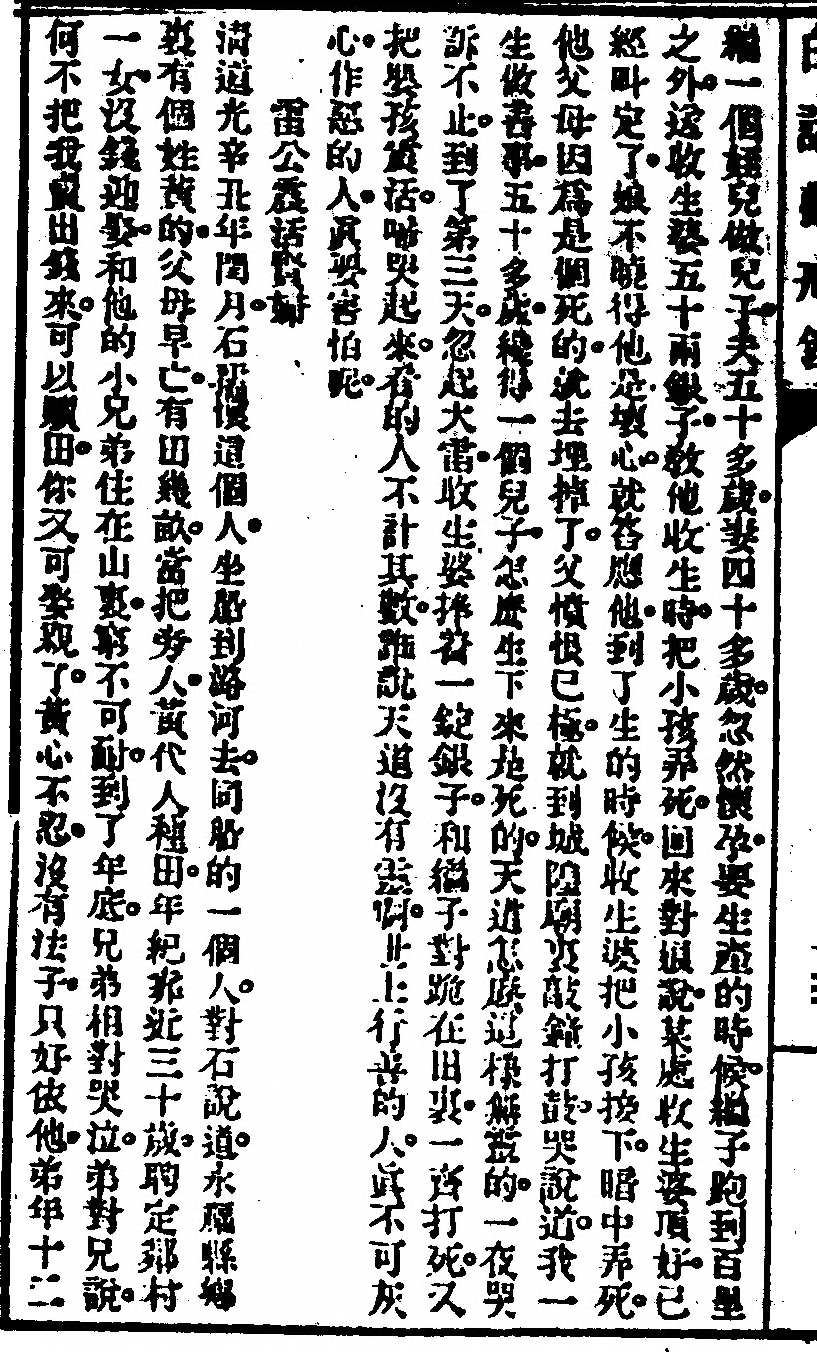 繼一個姪兒做兒子夫五十多歲妻四十多歲忽然懷孕要生產的時候繼子跑到百里
之外送收生婆五十兩銀子敎他收生時把小孩弄死回來對娘說某處收生婆頂好已
經叫定了娘不曉得他是壞心就答應他到了生的時候收生婆把小孩接下暗中弄死
他父母因爲是個死的就去埋掉了父憤恨已極就到城隍廟裏敲鐘打鼓哭說道我一
生做善事五十多歲纔得一個兒子怎麽生下來是死的天道怎麽這樣無靈的一夜哭
訴不止到了第三天忽起大雷收生婆捧着一錠銀子和繼子對跪在田裏一齊打死又
把嬰孩震活啼哭起來看的人不計其數誰說天道沒有靈驗世上行善的人眞不可灰
心作惡的人眞要害怕呢
雷公震活賢婦
淸道光辛丑年閏月石琪懷這個人坐船到潞河去同船的一個人對石說道永福縣鄉
裏有個姓黃的父母早亡有田幾畝當把旁人黃代人種田年紀靠近三十歲聘定鄰村
一女沒錢迎娶和他的小兄弟住在山裏窮不可耐到了年底兄弟相對哭泣弟對兄說
何不把我賣出錢來可以贖田你又可娶親了黃心不忍沒有法子只好依他弟年十二